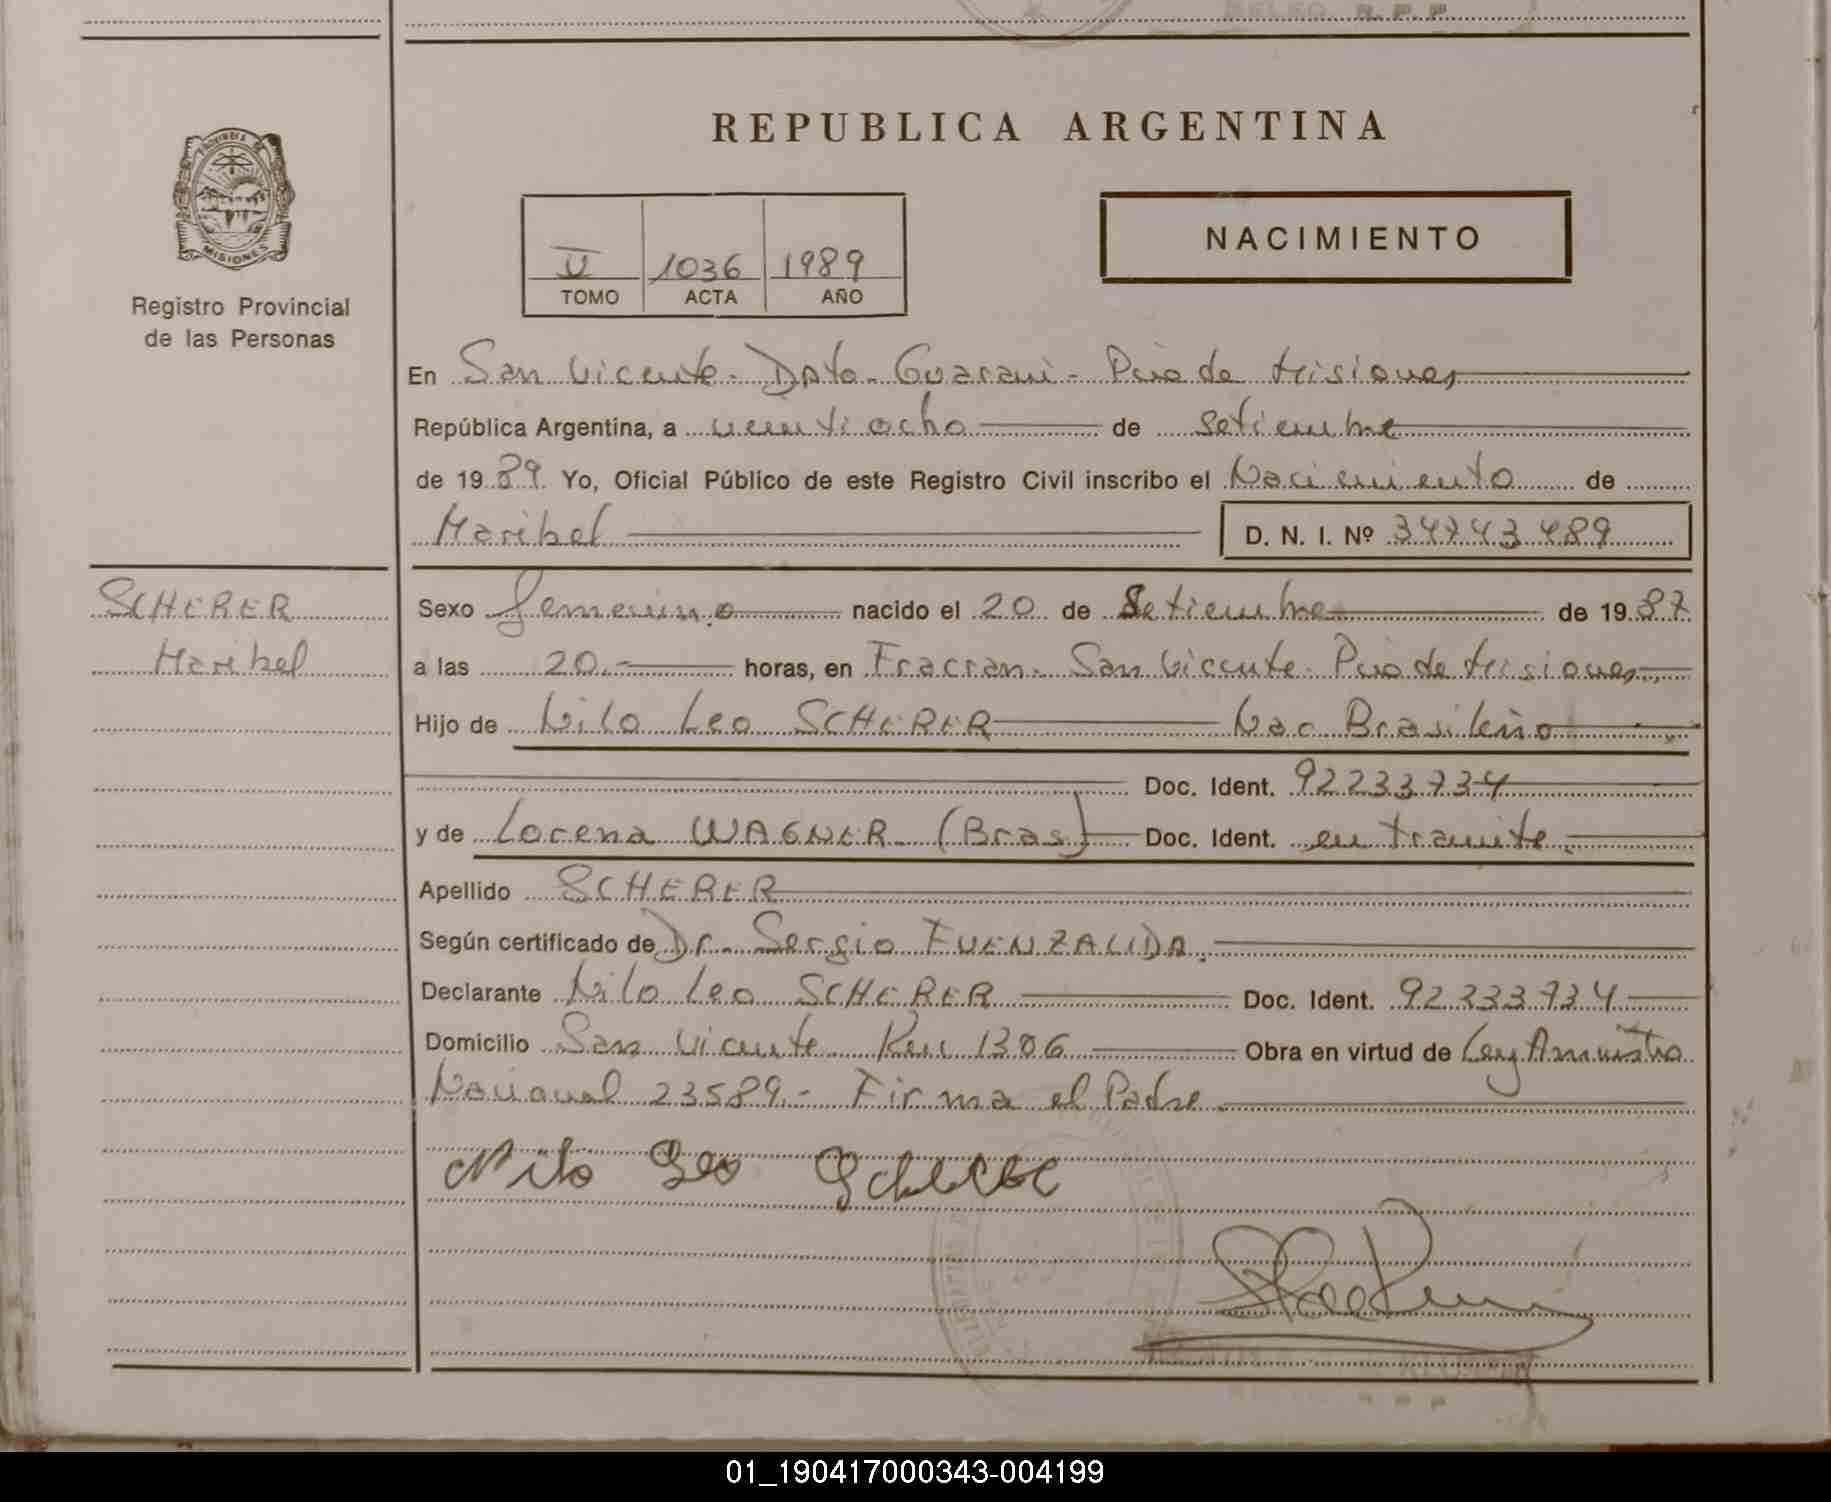 REPUBLICA ARGENTINA
PROVINCIA DE
MISIONES
Registro Provincial
de las Personas
NACIMIENTO
V 1036 1989
TOMO ACTA AÑO
En San Vicente - Dpto - Guarani - Pcia de Misiones
República Argentina, a veintiocho de setiembre
de 1989 Yo, Oficial Público de este Registro Civil inscribo el Nacimiento de
Maribel D. N. I. Nº 34743489
SCHERER
Maribel
Sexo femenino nacido el 20 de Setiembre de 1987
a las 20.- horas, en Fracran - San Vicente - Pcia de Misiones
Hijo de Nilo Leo SCHERER Nac Brasileño
Doc. Ident. 92233734
y de Lorena WAGNER (Bras) Doc. Ident. en tramite.
Apellido SCHERER
Según certificado de Dr. Sergio FUENZALIDA.
Declarante Nilo Leo SCHERER Doc. Ident. 92233734
Domicilio San Vicente Km 1306 Obra en virtud de Ley Amnistia
Nacional 23589.- Firma el Padre.
Nilo Leo Scherer
01_190417000343-004199